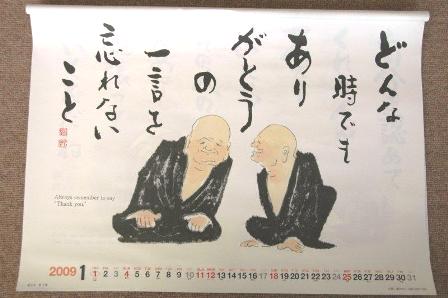 どんな
時でも
あり
がとう
の
一言を
忘れない
こと
Always remember to say
"Thank you."
2009 1 1 2 3 4 5 6 7 8 9 10 11 12 13 14 15 16 17 18 19 20 21 22 23 24 25 26 27 28 29 30 31